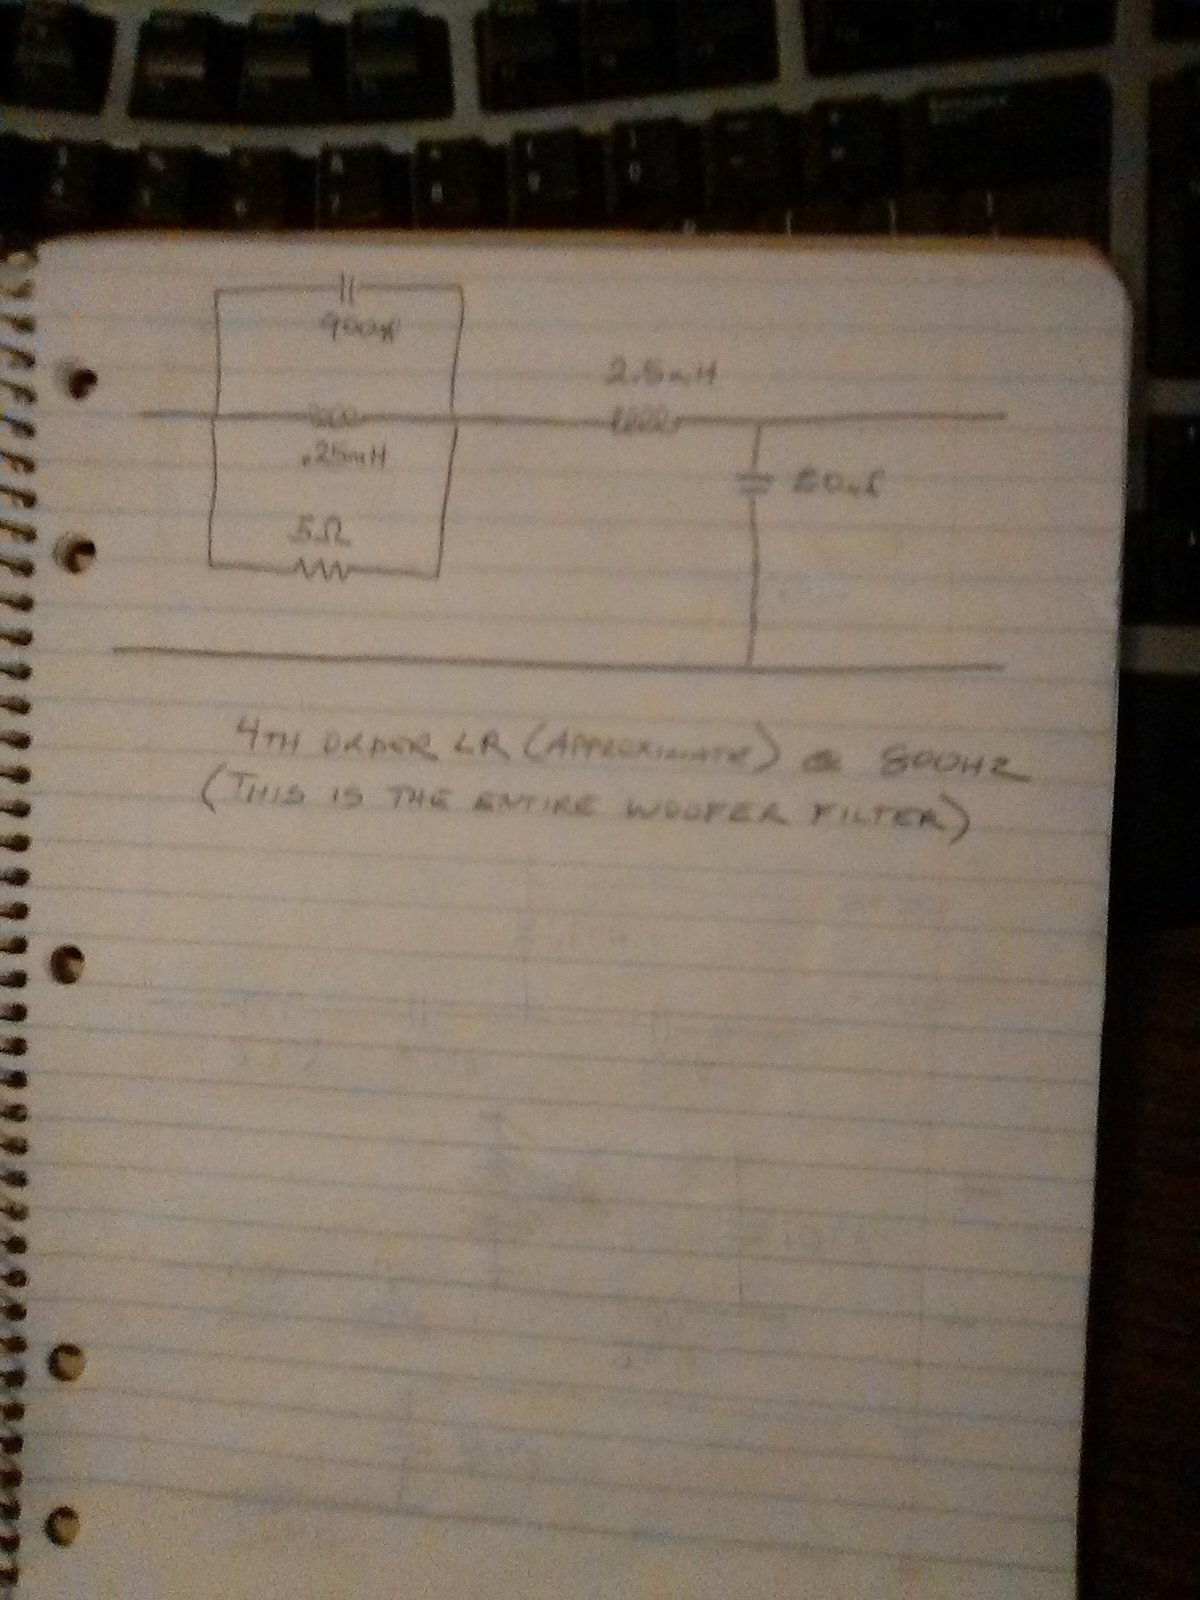 2.5mH
.25mH
5Ω
4TH ORDER LR (APPROXIMATE) @ 800HZ
(THIS IS THE ENTIRE WOOFER FILTER)